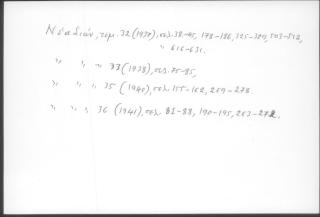 Νέα Σιών, τομ. 32 (1937), σελ. 38-45, 178-186, 325-320, 503-512,
" 616-631.
" " " 33 (1938), σελ. 75-85,
" " " 35 (1940), σελ. 155-162, 269-278.
" " " 36 (1941), σελ. 81-88, 190-195, 263-272.